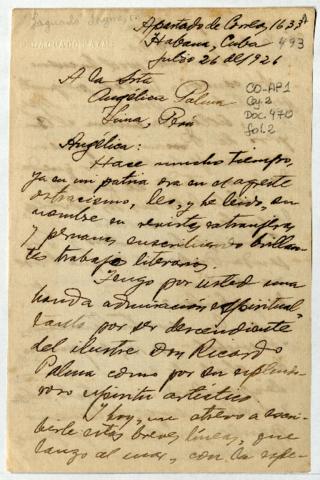 Apartado de Correos, 1633
Habana, Cuba
493
julio 26 de 1926
A la Srta
Angélica Palma
Lima, Perú
CO-AP1
Caj. 2
Doc. 470
fol. 2
Angélica:
Hace mucho tiempo,
ya en mi patria ora en el agreste
ostracismo, leo, y he leido, su
nombre en revistas extranjeras
y peruanas suscribiendo brillan-
tes trabajos literarios.
Tengo por usted una
honda admiración espiritual,
tanto por ser descendiente
del ilustre Don Ricardo
Palma como por su
espíritu artístico
Y hoy, me atrevo a escri-
birle estas breves líneas, que
lanzo al mar, con la espe-